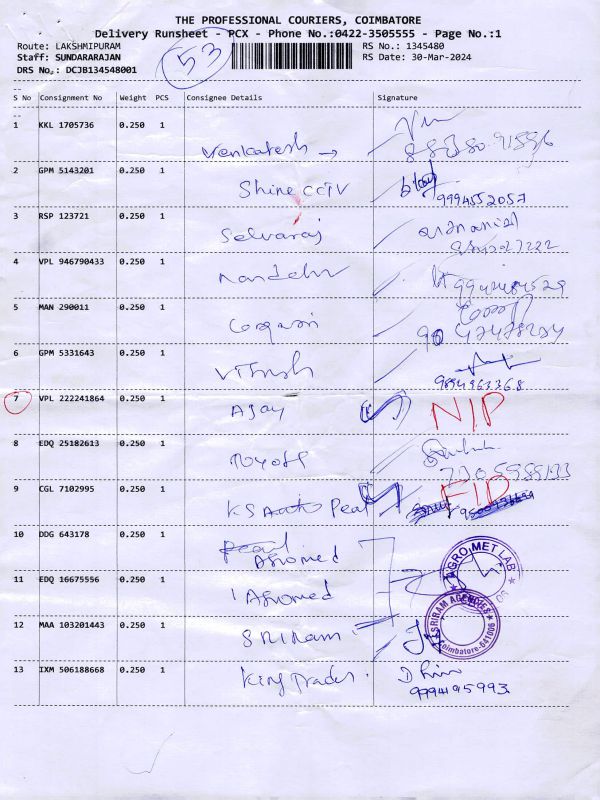 THE PROFESSIONAL COURIERS, COIMBATORE
Delivery Runsheet - PCX - Phone No.:0422-3505555 - Page No.:1
Route: LAKSHMIPURAM
RS No.: 1345480
Staff: SUNDARARAJAN
RS Date: 30-Mar-2024
DRS No.: DCJB134548001
53
S No Consignment No Weight PCS Consignee Details Signature
1 KKL 1705736 0.250 1
Venkatesh →
2 GPM 5143201 0.250 1
Shine CCTV
9994552057
3 RSP 123721 0.250 1
Selvaraj
4 VPL 946790433 0.250 1
5 MAN 290011 0.250 1
6 GPM 5331643 0.250 1
9894963368
7 VPL 222241864 0.250 1
Ajay NIP
8 EDQ 25182613 0.250 1
7305989133
9 CGL 7102995 0.250 1
KS Pearl FID
10 DDG 643178 0.250 1
Agromed
AGRO MET LAB
11 EDQ 16675556 0.250 1
Agromed
12 MAA 103201443 0.250 1
SRIRam
SRIRAM AGENCIES
Coimbatore-641006
13 IXM 506188668 0.250 1
King Trades.
9994195993